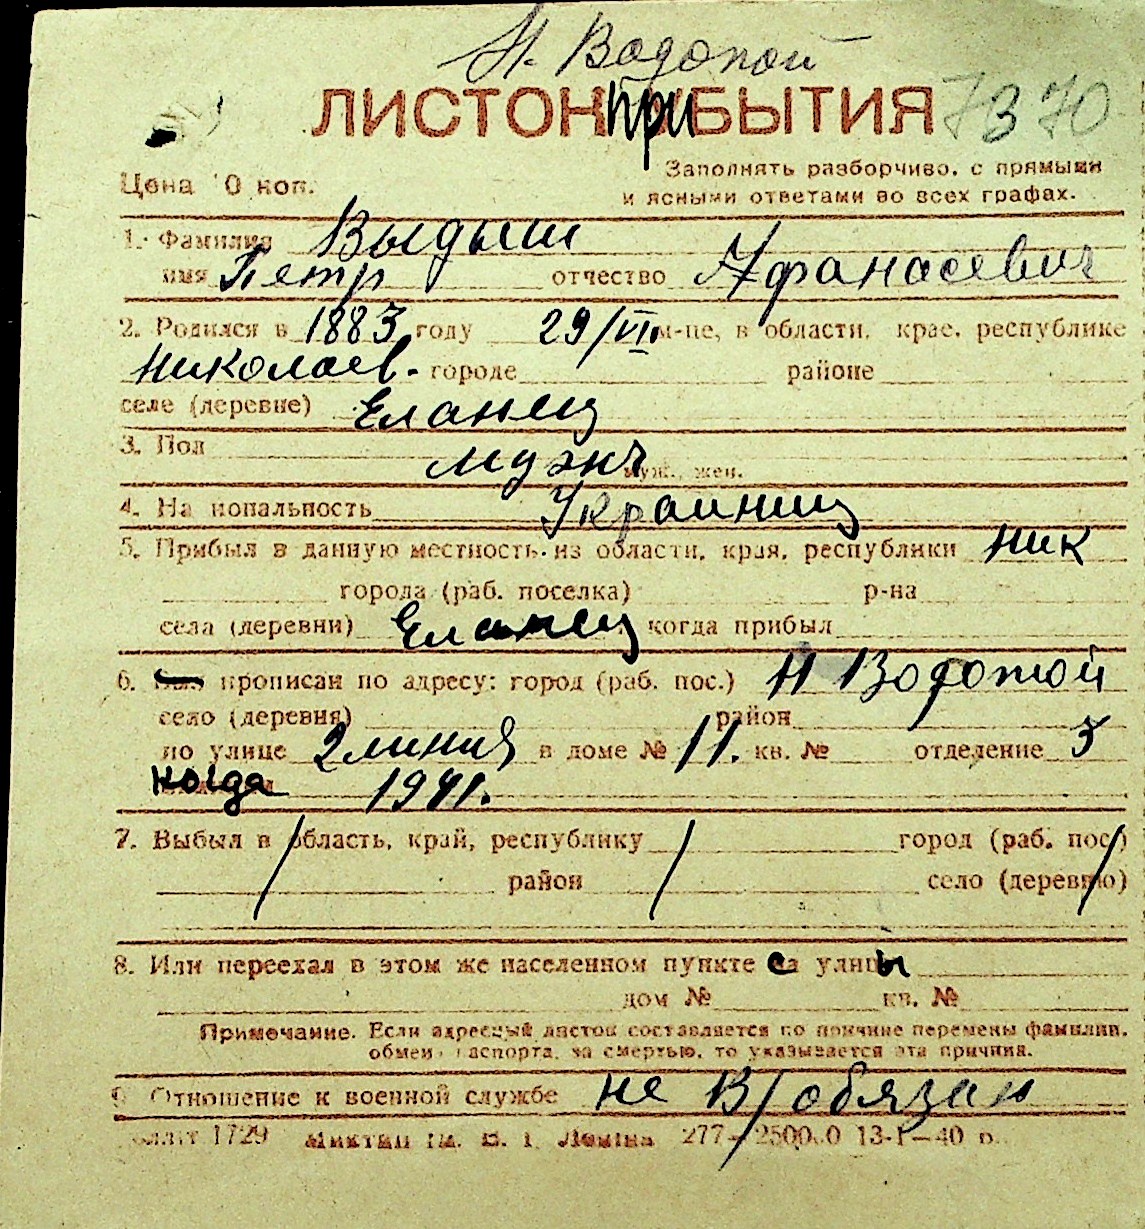 Н. Водопой
ЛИСТОК ПРИБЫТИЯ 7370
Цена 10 коп.
Заполнять разборчиво, с прямыми
и ясными ответами во всех графах.
1. Фамилия Выдыш
имя Петр отчество Афанасевич
2. Родился в 1883 году 29/VI м-це, в области, крае, республике
Николаев. городе районе
селе (деревне) Еланец
3. Пол мужч
муж., жен.
4. Национальность Украинец
5. Прибыл в данную местность из области, края, республики Ник
города (раб. поселка) р-на
села (деревни) Еланец когда прибыл
6. прописан по адресу: город (раб. пос.) Н Водопой
село (деревня) район
по улице 2 линия в доме № 11. кв. № отделение 3
когда 1941.
7. Выбыл в область, край, республику город (раб. пос.)
район село (деревню)
8. Или переехал в этом же населенном пункте с улицы
дом № кв. №
Примечание. Если адресный листок составляется по причине перемены фамилии,
обмен паспорта, за смертью, то указывается эта причина.
9. Отношение к военной службе не в/обязан
1729 Ленина 277— 13-I—40 р.